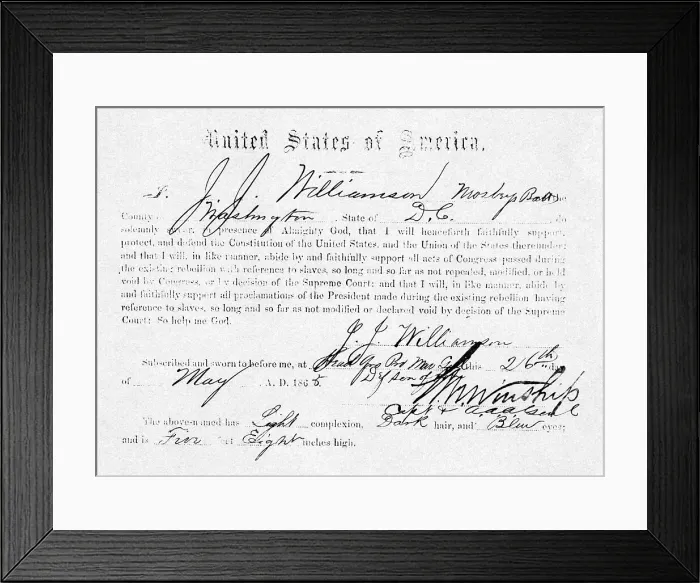 United States of America.
I, J. J. Williamson Mosbys Batt.
County Washington, State of D.C. do
solemnly swear, presence of Almighty God, that I will henceforth faithfully support,
protect, and defend the Constitution of the United States, and the Union of the States thereunder;
and that I will, in like manner, abide by and faithfully support all acts of Congress passed during
the existing rebellion with reference to slaves, so long and so far as not repealed, modified, or held
void by Congress, or by decision of the Supreme Court; and that I will, in like manner, abide by
and faithfully support all proclamations of the President made during the existing rebellion having
reference to slaves, so long and so far as not modified or declared void by decision of the Supreme
Court: So help me God.
J. J. Williamson
Subscribed and sworn to before me, at Head Qrs Pro Mar this 26th day
of May A. D. 1865.
Winship
Capt &
The above-named has Light complexion, Dark hair, and Blue eyes;
and is Five feet Eight inches high.